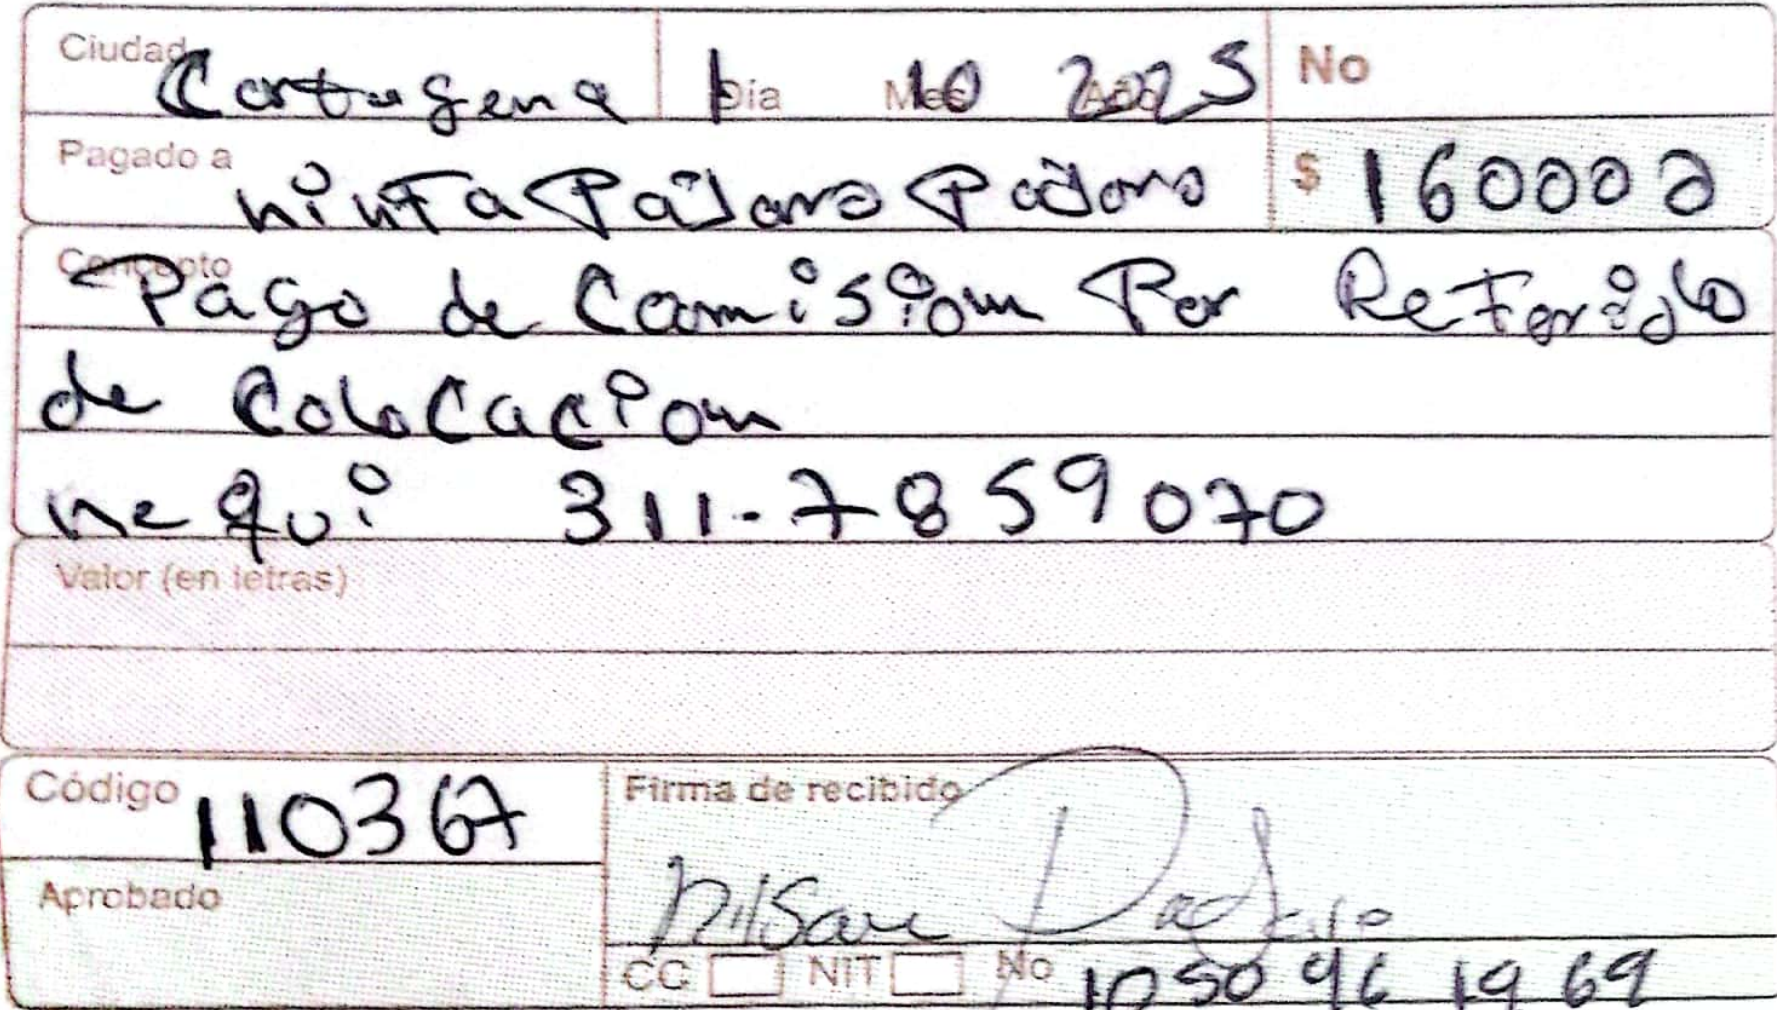 Ciudad Cartagena Día 1 Mes 10 Año 2025 No
Pagado a ninfa Pajaro Pajaro $ 160000
Concepto
Pago de Comisiom Por ReFerido
de Colocaciom
nequi 311-7859070
Valor (en letras)
Código 110367 Firma de recibido
Aprobado
CC NIT No 1050961969